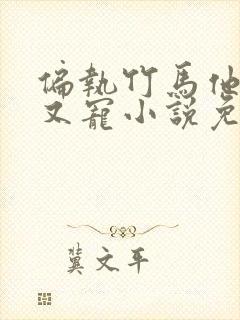 偏執竹馬他
又寵小說免
龔文平